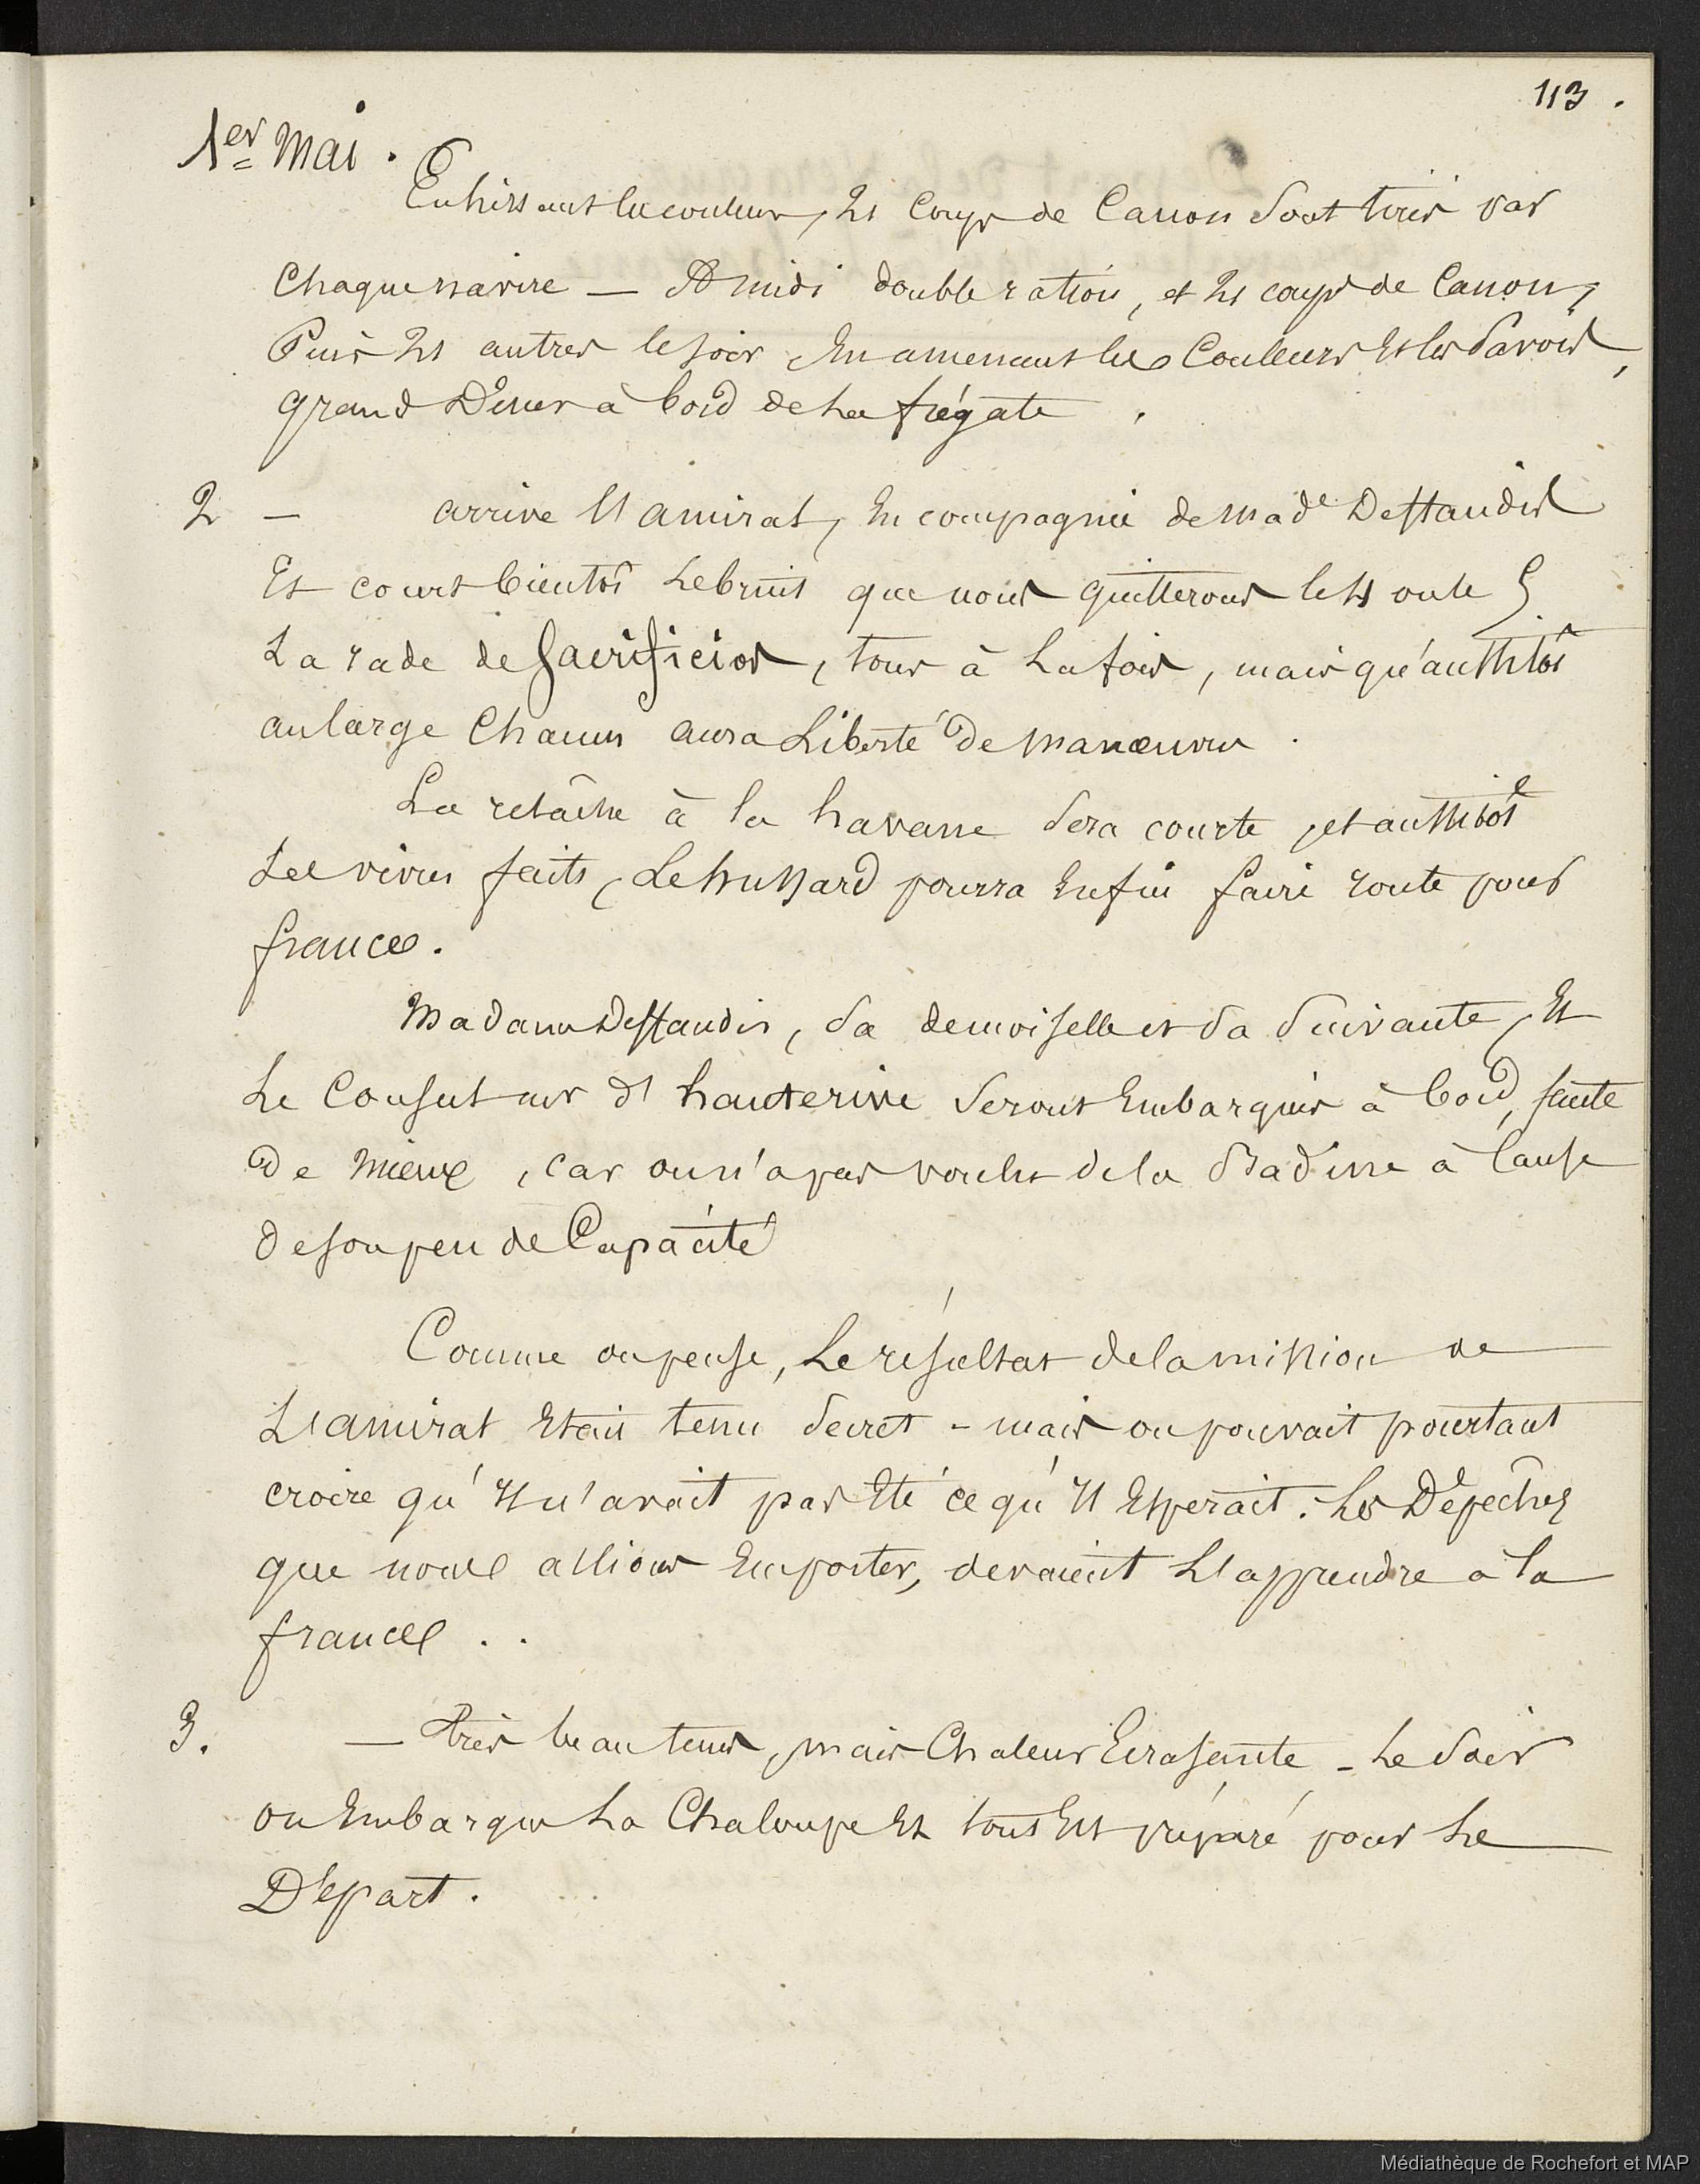 113.
1er Mai.
En hissant les couleurs, 21 Coups de Canon sont tirés par
Chaque navire — A midi double ration, et 21 coups de Canon,
Puis 21 autres le soir En amenant les Couleurs Et les Pavois,
grand Diner à bord de La frégate.
2 — arrive l'amiral, En compagnie de Made Deffaudis
Et court bientôt Le bruit que nous quitterons le
La rade de Sacrificios, tous à La fois, mais qu'aussitôt
au large Chacun aura Liberté de manœuvre.
La relâche à la havane sera courte, et aussitôt
Les vivres faits, Le hussard pourra Enfin faire route pour
france.
Madame Deffaudis, sa demoiselle et sa suivante, Et
Le Consul mr d'hauterive seront Embarqués à bord, faute
De mieux, car on n'a pas voulu de la Badine à Cause
de son peu de Capacité
Comme on pense, Le résultat de la mission de
L'amiral Etait tenu secret - mais on pouvait pourtant
croire qu'Il n'avait pas Eté ce qu'Il Espérait. Les Dépêches
que nous allions Emporter, devaient L'apprendre à la
france..
3. — très beau tems, mais Chaleur Ecrasante - Le soir
on Embarque La Chaloupe Et tout Est préparé pour Le
Départ.
Médiathèque de Rochefort et MAP